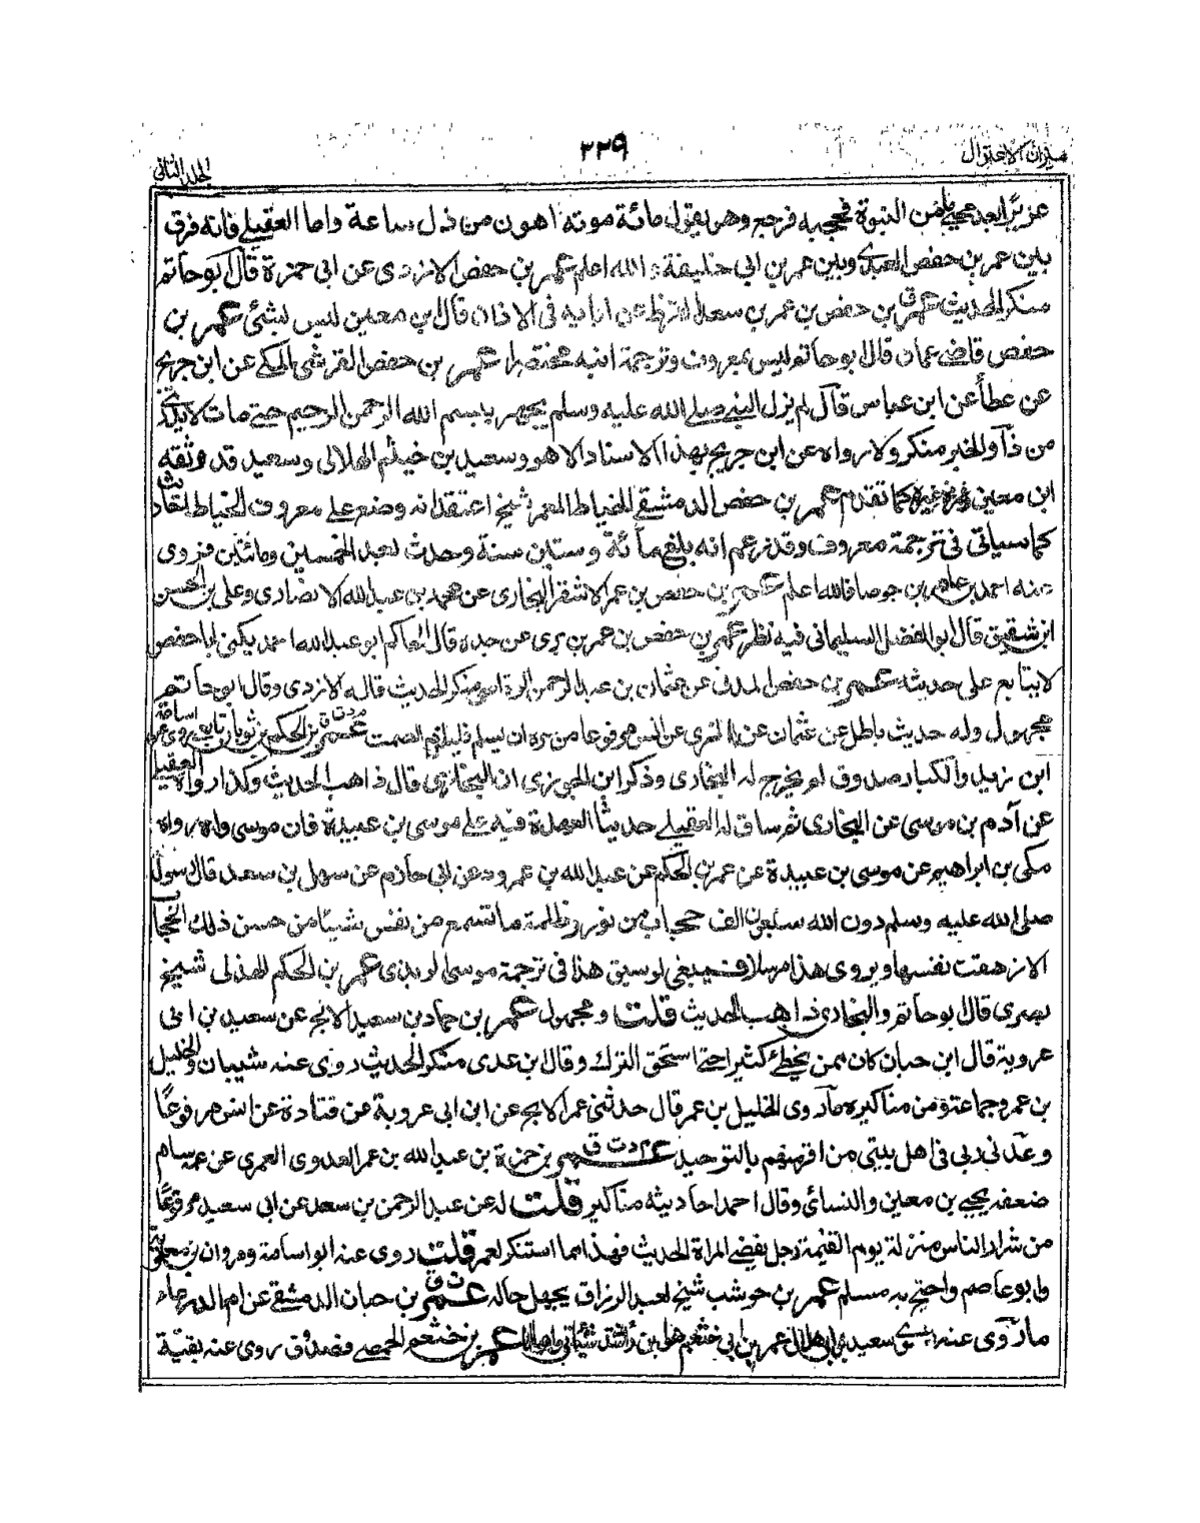 ميزان الاعتدال
٢٢٩
الجلد الثاني
عزيزا بعد محي من النبوة فحجبه فرجع وهو يقول مائة موتة اهون من ذل ساعة واما العقيلي فانه فرق
بين عمر بن حفص العبدي وبين عمر بن ابي خليفة والله اعلم عمر بن حفص الازدي عن ابي حمزة قال ابو حاتم
منكر الحديث عمر بن حفص بن عمر بن سعد القرظ عن ابايه في الاذان قال بن معين ليس بشئ عمر بن
حفص قاضي عمان قال ابو حاتم ليس بمعروف وترجمة ابنه مختصرا عمر بن حفص القرشي المكي عن ابن جريج
عن عطأ عن ابن عباس قال لم يزل النبي صلى الله عليه وسلم يجهر ببسم الله الرحمن الرحيم حتى مات لا يدرى
من ذا والخبر منكر ولا رواه عن ابن جريج بهذا الاسناد الا هو وسعيد بن خيثم الهلالي وسعيد قد وثقه
ابن معين وغيره كما تقدم عمر بن حفص الدمشقي الخياط المعمر شيخ اعتقد انه وضع على معروف الخياط احاديث
كما سياتي في ترجمة معروف وقد زعم انه بلغ مائة وستين سنة وحدث بعد الخمسين ومائتين فروى
عنه احمد بن عامر بن جوصا فالله اعلم عمر بن حفص بن عمر الاشقر البخاري عن محمد بن عبد الله الانصاري وعلي بن الحسن
ابن شقيق قال ابو الفضل السليماني فيه نظر عمر بن حفص بن عمر بن بري عن جده قال الحاكم ابو عبد الله احمد يكنى ابا حفص
لا يتابع على حديثه عمر بن حفص المدني عن عثمان بن عبد الرحمن الوقاصي منكر الحديث قاله الازدي وقال ابو حاتم
مجهول وله حديث باطل عن عثمان عن الزهري عن انس مرفوعا من سره ان يسلم فليلزم الصمت عمر بن الحكم بن ثوبان تابعي روى عن اسامة
ابن زيد والكبار صدوق لم يخرج له البخاري وذكر ابن الجوزي ان البخاري قال ذاهب الحديث وكذا رواه العقيلي
عن آدم بن موسى عن البخاري ثم ساق له العقيلي حديثا العهدة فيه على موسى بن عبيدة فان موسى واه رواه
مكي بن ابراهيم عن موسى بن عبيدة عن عمر بن الحكم عن عبد الله بن عمرو وعن ابي حازم عن سهل بن سعد قال رسول الله
صلى الله عليه وسلم دون الله سبعون الف حجاب من نور وظلمة ما تسمع من نفس شيئا من حسن ذلك الحجاب
الا زهقت نفسها ويروى هذا مرسلا فينبغي لو سيق هذا في ترجمة موسى الربذي عمر بن الحكم الهذلي شيخ
بصري قال ابو حاتم والبخاري ذاهب الحديث قلت ومجهول عمر بن حماد بن سعيد الابح عن سعيد بن ابي
عروبة قال ابن حبان كان ممن يخطئ كثيرا حتى استحق الترك وقال ابن عدي منكر الحديث روى عنه شيبان والخليل
بن عمر وجماعة ومن مناكيره ما روى الخليل بن عمر قال حدثني عمر الابح عن ابن ابي عروبة عن قتادة عن انس مرفوعا
وعدني ربي في اهل بيتي من اقر منهم بالتوحيد عمر بن حمزة بن عبد الله بن عمر العدوي العمري عن عمه سالم
ضعفه يحيى بن معين والنسائي وقال احمد احاديثه مناكير قلت له عن عبد الرحمن بن سعد عن ابي سعيد مرفوعا
من شرار الناس منزلة يوم القيمة رجل يفضي المراة الحديث فهذا مما استنكر لعمر قلت روى عنه ابو اسامة ومروان بن معاوية
وابو عاصم واحتج به مسلم عمر بن حوشب شيخ لعبد الرزاق يجهل حاله عمر بن حيان الدمشقي عن ام الدرداء
ما روى عنه سوى سعيد بن ابي هلال عمر بن ابي خثعم هو بن راشد سياتي عمر بن خثعم الحمصي فصدوق روى عنه بقية